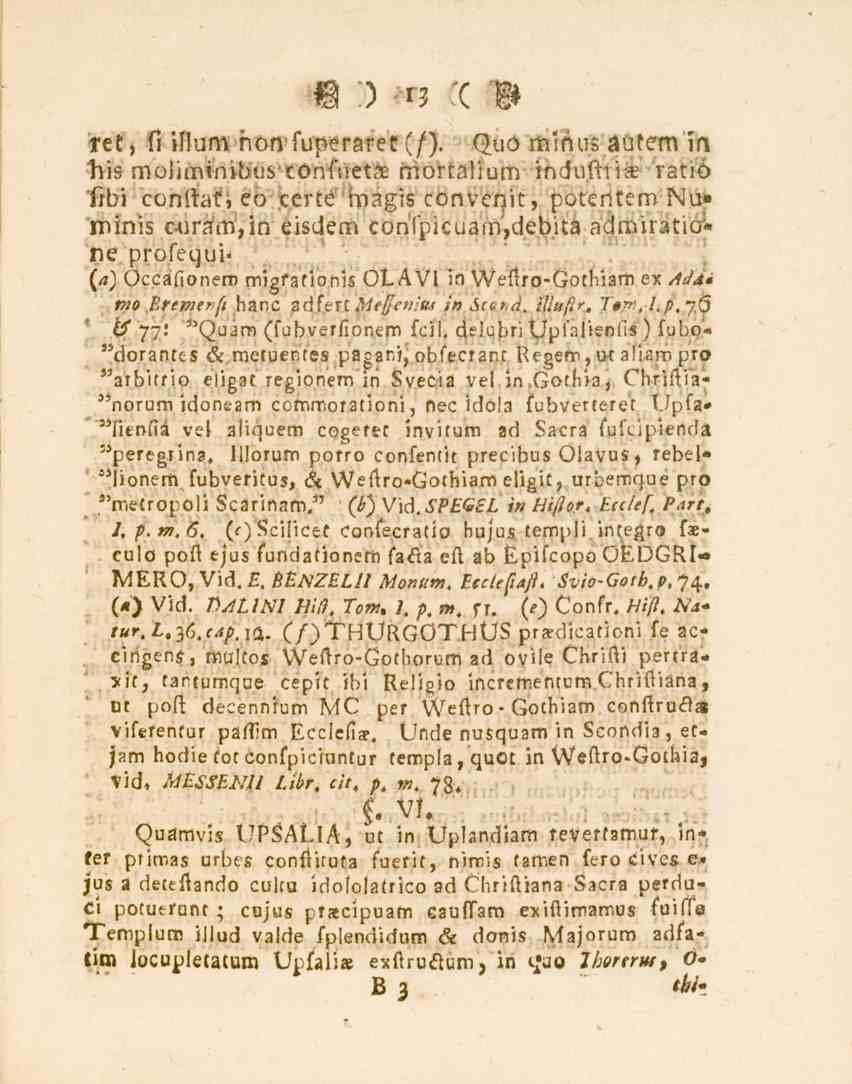 ) 13 (
ret, ſi illum non ſuperaret (f). Quo minus autem in
his moliminibus conſuetæ mortalium induſtriæ ratio
ſibi conſtat, eo certe magis convenit, potentem Nu-
minis curam, in eisdem conſpicuam, debita admiratio-
ne proſequi.
(a) Occaſionem migrationis OLAVI in Weſtro-Gothiam ex Ada-
mo Bremenſi hanc adfert Meſſenius in Scand. illuſtr. Tom. I. p. 76
& 77: ”Quam (ſubverſionem ſcil. delubri Upſalienſis) ſubo-
”dorantes & metuentes pagani, obſecrant Regem, ut aliam pro
”arbitrio eligat regionem in Svecia vel in Gothia, Chriſtia-
”norum idoneam commorationi, nec idola ſubverteret Upſa-
”lienſia vel aliquem cogeret invitum ad Sacra ſuſcipienda
”peregrina. Illorum porro conſentit precibus Olavus, rebel-
”lionem ſubveritus, & Weſtro-Gothiam eligit, urbemque pro
”metropoli Scarinam.” (b) Vid. SPEGEL in Hiſtor. Eccleſ. Part.
I. p. m. 6. (c) Scilicet conſecratio hujus templi integro ſæ-
culo poſt ejus fundationem facta eſt ab Epiſcopo OEDGRI-
MERO, Vid. E. BENZELII Monum. Eccleſiaſt. Svio-Goth. p. 74.
(a) Vid. DALINI Hiſt. Tom. I. p. m. 51. (e) Confr. Hiſt. Na-
tur. L. 36. cap. 12. (f) THURGOTHUS prædicationi ſe ac-
cingens, multos Weſtro-Gothorum ad ovile Chriſti pertra-
xit, tantumque cepit ibi Religio incrementum Chriſtiana,
ut poſt decennium MC per Weſtro-Gothiam conſtructæ
viſerentur paſſim Eccleſiæ. Unde nusquam in Scondia, et-
jam hodie tot conſpiciuntur templa, quot in Weſtro-Gothia,
vid. MESSENII Libr. cit. p. m. 78.
§. VI.
Quamvis UPSALIA, ut in Uplandiam revertamur, in-
ter primas urbes conſtituta fuerit, nimis tamen ſero cives e-
jus a deteſtando cultu idololatrico ad Chriſtiana Sacra perdu-
ci potuerunt; cujus præcipuam cauſſam exiſtimamus fuiſſe
Templum illud valde ſplendidum & donis Majorum adfa-
tim locupletatum Upſaliæ exſtructum, in quo Thorerus, O-
B 3 thi-